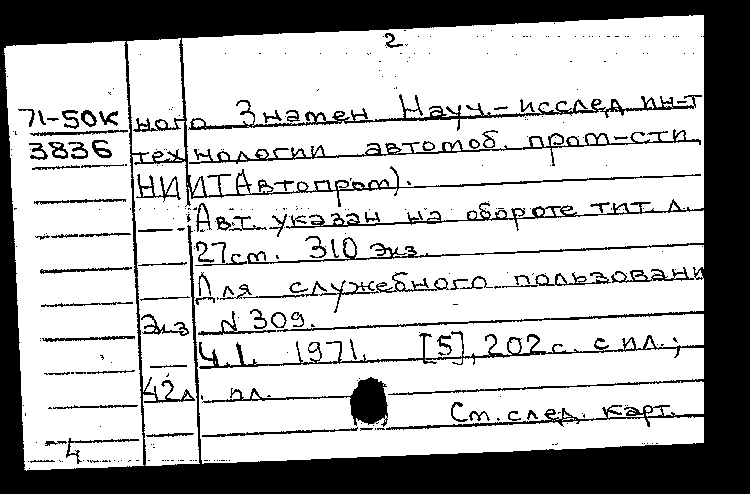 2
71-50к ного Знамен Науч.-исслед ин-т
3836 технологии автомоб. пром-сти,
НИИТАвтопром).
Авт. указан на обороте тит. л.
27 ст. 310 экз.
Для служебного пользовани
Экз N 309.
Ч.I. 1971. [5], 202 с. с ил.;
42 л. ил.
См. след. карт.
4